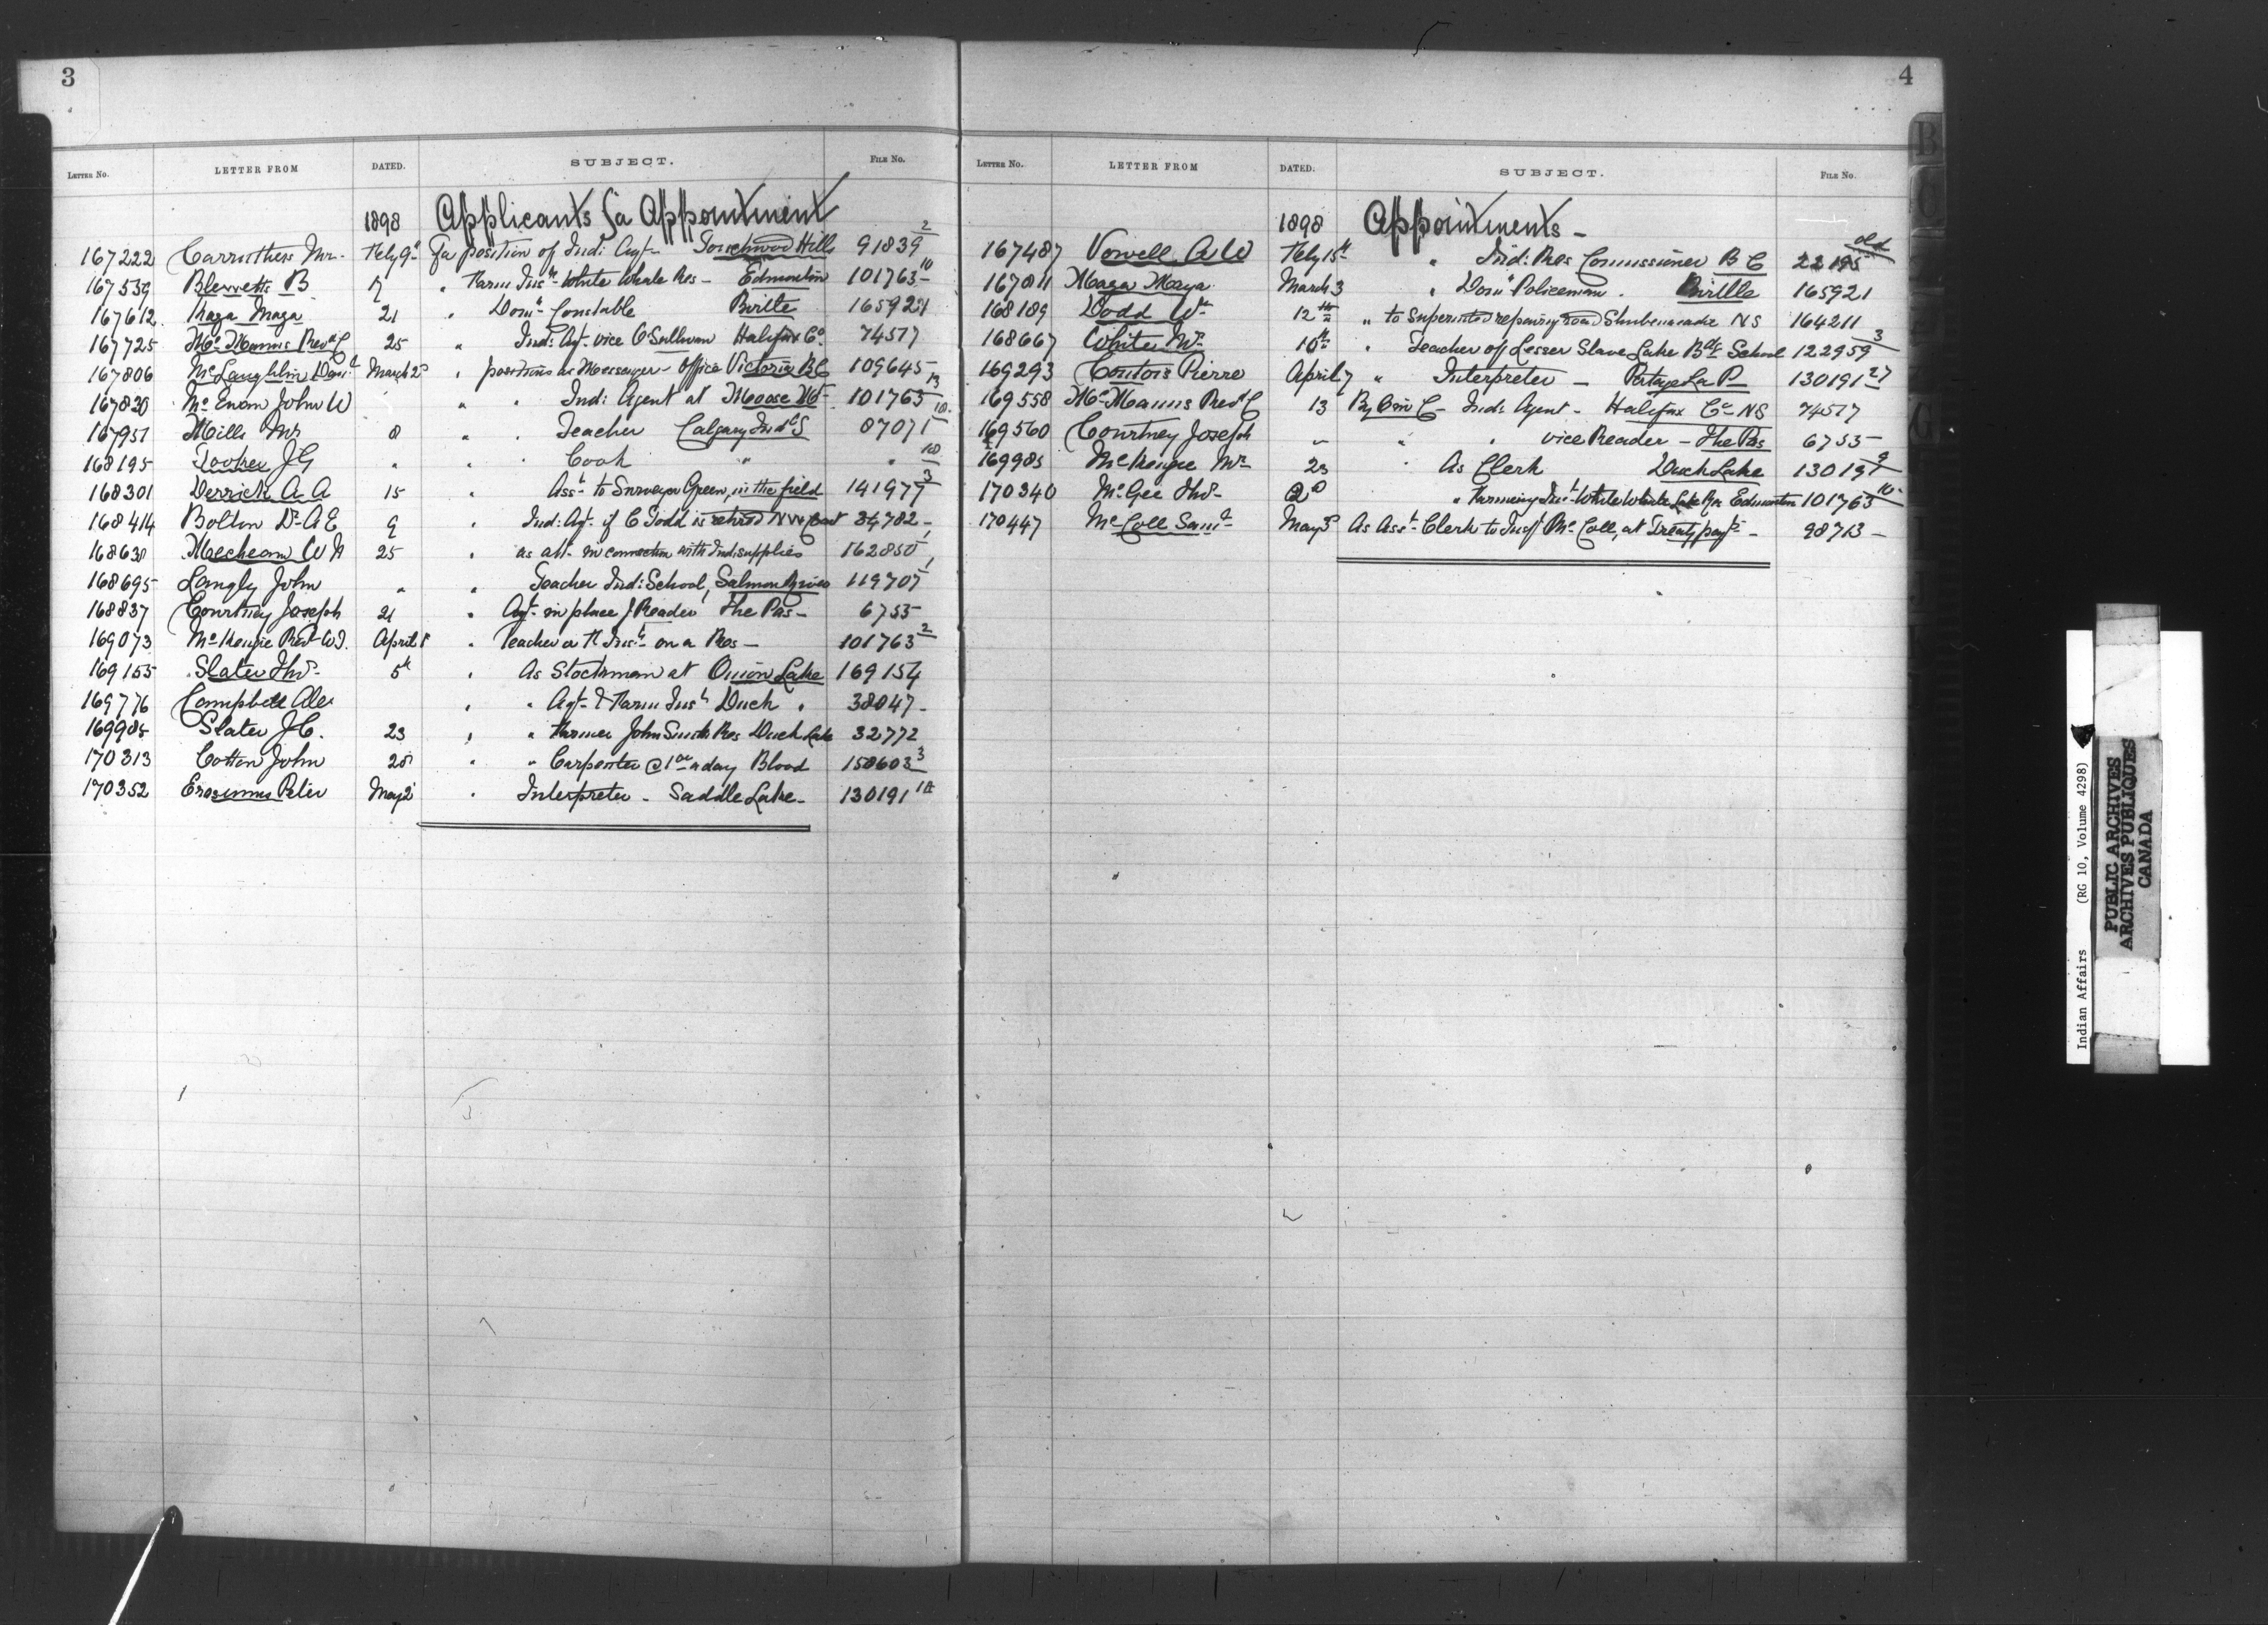 3
LETTER NO. LETTER FROM DATED. SUBJECT. FILE NO.
1898 Applicants for Appointment
167222 Carruthers Mr. Feby 9th For position of Ind: Agt- Touchwood Hills 91839 2
167539 Blewett B 17 " Farm Insr White Whale Res - Edmonton 101763 10
167612 Kaga Maga 21 " Domn Constable Birtle 165921
167725 McManus Revd C 25 " Ind: Agt- vice O'Sullivan Halifax Co 74517
167806 McLaughlin Danl March 2 " position as Messenger - Office Victoria BC 109645
167830 McEwan John W " " Ind: Agent at Moose Mt 101763 13
167951 Mills Mr 8 " " Teacher Calgary Ind. S 87071 10
168195 Tooker J G " " " Cook " " 10
168301 Derrick A A 15 " Asst to Surveyor Green, in the field 141977 3
168414 Bolton Dr A E 9 " Ind: Agt- if C Todd is retired N W Coast 34782 -
168638 Mecheam W H 25 " as in connection with Ind: supplies 162850 1
168695 Langly John " " Teacher Ind: School, Salmon River 119707 1
168837 Courtney Joseph 21 " Agt- in place J Reader The Pas - 6755
169073 McKenzie Revd W J. April 1 " Teacher or F Insr- on a Res - 101763 2
169155 Slater Thos- 5th " As Stockman at Onion Lake 169154
169776 Campbell Alex " " Agt- & Farm Insr Duck " 38047 -
169985 Slater J C. 23 " " Farmer John Smith Res Duck Lake 32772
170313 Cotton John 28 " " Carpenter @ 1 00 a day Blood 158603 3
170352 Erasmus Peter May 2 " Interpreter - Saddle Lake - 130191 18
4
LETTER NO. LETTER FROM DATED. SUBJECT. FILE NO.
1898 Appointments -
167487 Vowell A W Feby 15th " Ind: Res Commissioner B C 22195 old
167811 Kaga Maga March 3 " Domn Policeman . Birtle 165921
168189 Dodd Wm 12th " to Superintend repairing road Shubenacadie NS 164211
168667 White Mr. 10th " Teacher of Lesser Slave Lake Bdg School 122959 3
169293 Contois Pierre April 7 " Interpreter - Portage La P 130191 27
169558 McManus Revd C 13 By O in C - Ind: Agent - Halifax Co NS 74517
169560 Courtney Joseph " " " vice Reader - The Pas 6755
169985 McKenzie Mr 23 " As Clerk Duck Lake 130191 9
170340 McGee Thos- " Farming Insr- White Whale Lake Res Edmonton 101763 10
170447 McColl Saml May 3 As Asst- Clerk to Insp McColl, at Treaty payts - 98713 -
Indian Affairs (RG 10, Volume 4298)
PUBLIC ARCHIVES
ARCHIVES PUBLIQUES
CANADA